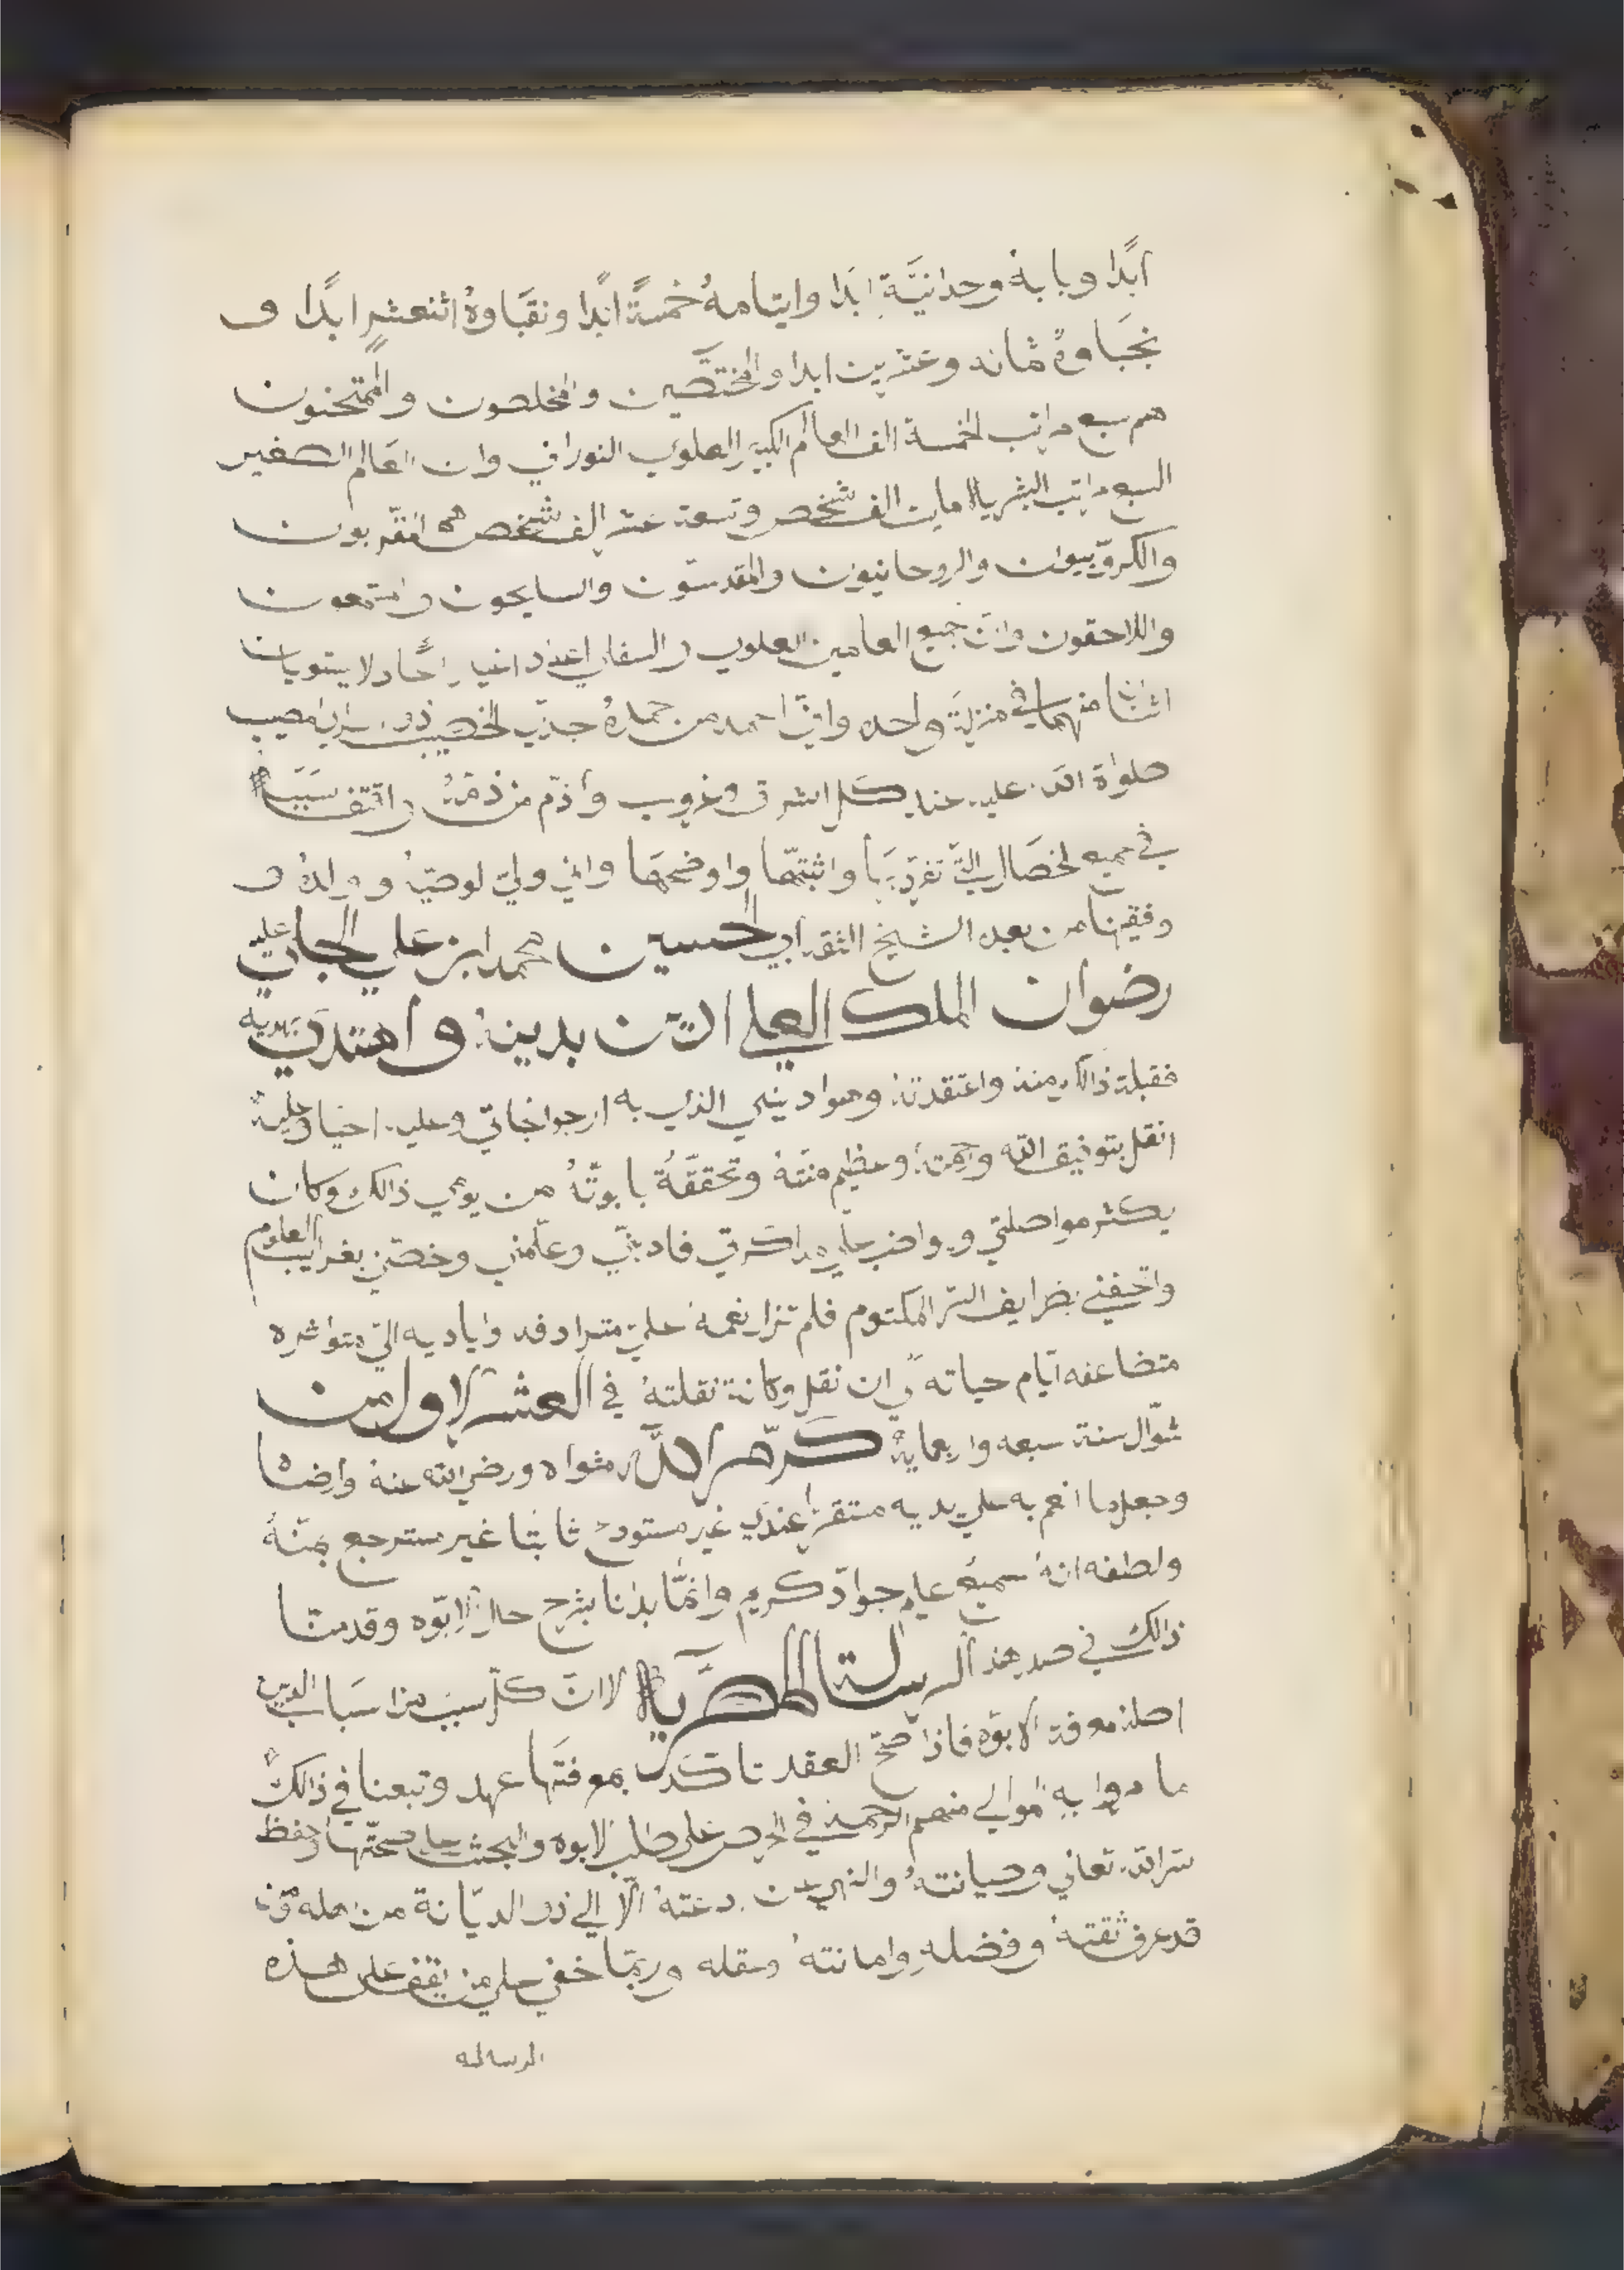 ابدًا وبابه وحدانيَّة ابدًا وايتامهُ خمسةً ابدًا ونقبَاوهُ اثنعشرٍ ابدًا و
نجبَاوهُ ثمانه وعشرين ابدا والمختصّين والمخلصون والممتحنون
هم سبع مراتب الخمسة الف العالم الكبير العلوي النوراني وان العالم الصغير
السبع مراتب البشريه مايت الف شخص وتسعة عشر الف شخص هم المقربون
والكروّبيون والروحانيون والمقدسون والسايحون والمستمعون
واللاحقون وانّ جميع العامين العلوي والسفلي اعداد لا يستويان
اثنا منهما في منزلة واحده وانّي احمد من حمدهُ جدّي الخصيب
صلواة الله عليه عند كل شرق وغروب وأذم من ذمّهُ
في جميع الخصال التي تفرّد بها واثبتّها واوضحها واني وليّ لوصيّه وولدهُ و
وفقيهنا من بعده الشيخ الثقه ابي الحسين محمد ابن علي الجلي عليه
رضوان الملك العلي ادين بدينه واهتدي بهديه
فقبلة ذالك منه واعتقدتهُ وهوا ديني الذي به ارجوا نجاتي وعليه احيا وعليه
انقل بتوفيق الله ورحمتهِ وعظيم منّتهُ وتحققتهُ بابوتّهُ من يومي ذالك وكان
يكثر مواصلتي ويواضب علي مداكرتي فادبّني وعلّمني وخصّني بغرايب العلوم
واتحفني بضرايف السّر المكتوم فلم تزل نعمهُ عليّ مترادفه واياديه اليّ متواتره
متضاعفه ايّام حياته الي ان نقل وكانة نقلتهُ في العشر الاول من
شوّال سنة سبعه واربعمايةٍ كرّم الله مثواه ورضي الله عنهُ وارضاه
وجعل ما انعم به علي يديه مستقرًّا عندي غير مستودع ثابتًا غير مسترجع بمنّهُ
ولطفه انهُ سميعٌ عليم جوادٌ كريم وانمّا بدانا بشرح حال الابوّه وقدمنّا
ذالك في صدر هذه الرسالة المصريه لان كلّ سبب من اسباب الدين
اصلهُ معرفة الابوّه فاذا صحّ العقد تاكّد بمعرفتها عهد وتبعنا في ذالك
ما امروا به الموالي منهم الرحمة في الحرص على طلب الابوه والبحث علي صحّتها وحفظ
سّر الله تعالي وصيانتهُ والنهي عن ادعتهُ الّا الي ذو الديّانة من اهله ومن
قد عرف ثقتهُ وفضلهِ وامانتهُ وعقله وربمّا خفي علي من يقف علي هذه
الرساله